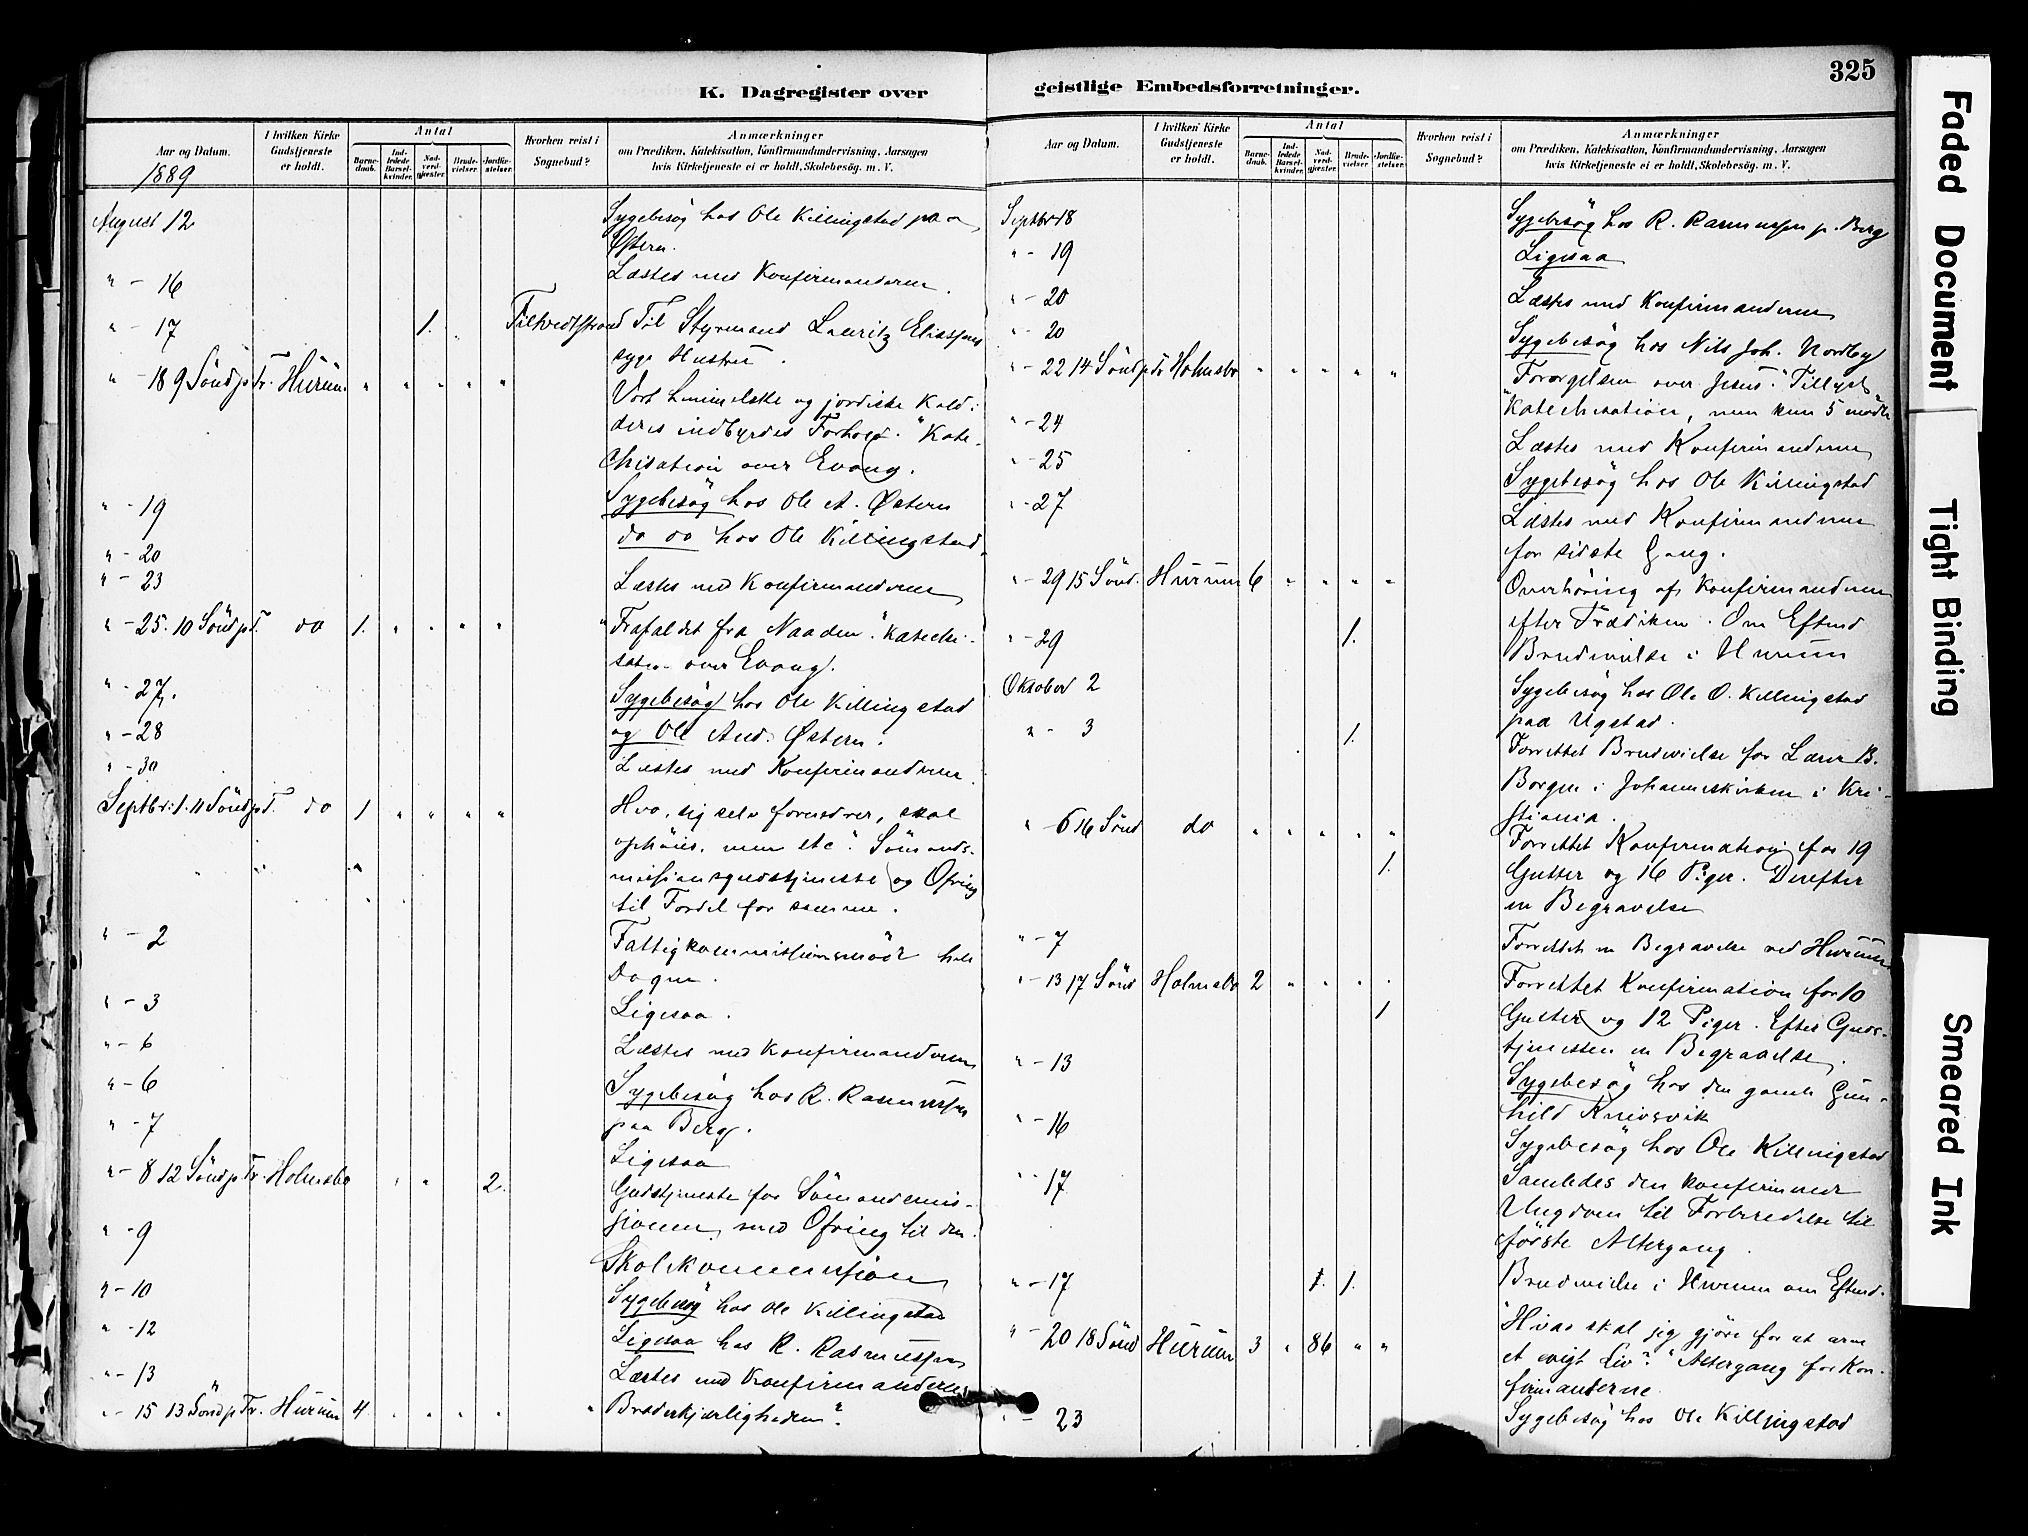 325
K. Dagregister over
geistlige Embedsforretninger.
Aar og Datum.
1889
I hvilken Kirke Gudstjeneste er holdt.
Antal
Barne-daab.
Ind-ledede Barsel-kvinder.
Nad-verd-gjester.
Brude-vielser.
Jordfæ-stelser.
Hvorhen reist i Sognebud?
Anmærkninger
om Prædiken, Katekisation, Konfirmandundervisning, Aarsagen
hvis Kirketjeneste ei er holdt, Skolebesøg. m. V.
August 12 Sygebesøg hos Ole Killingstad paa
Østern.
" - 16 Læstes med Konfirmanderne.
" - 17 1. Til Styrmand Lauritz Eliassens
syge Hustru.
" - 18 9 Søndp Tr. Hurum " " " " "
Vort himmelske og jordiske Kald:
deres indbyrdes Forhold." Kate-
chisation over Evang.
" - 19 Sygebesøg hos Ole A. Østern
" - 20 do do hos Ole Killingstad.
" - 23 Læstes med Konfirmanderne
" - 25. 10 Søndp T. do 1. " " " " "Frafaldet fra Naaden." Katechi-
sation over Evang.
" - 27. Sygebesøg hos Ole Killingstad
" - 28 og Ole And. Østern.
" - 30 Læstes med Konfirmanderne
Septbr: 1. 11 Søndp T. do 1 " " " " Hvo, sig selv fornedrer, skal
ophøies, men etc". Sømands-
missionsgudstjeneste og Ofring
til Fordel for samme.
" - 2 Fattigkommissionsmøde hele
Dagen.
" - 3 Ligesaa.
" - 6 Læstes med Konfirmanderne
" - 6 Sygebesøg hos R. Rasmussen
" - 7 paa Berg.
Ligesaa
" - 8 12 Søndp Tr. Holmsbo " " 2.
Gudstjeneste for Sømandsmis-
sionen, med Ofring til den.
" - 9 Skolekommission
" - 10 Sygebesøg hos Ole Killingstad
" - 12 Ligesaa hos R. Rasmussen
" - 13 Læstes med Konfirmanderne
" - 15 13 Søndp Tr. Hurum 4. " " " " "Broderkjærligheden".
Aar og Datum.
I hvilken Kirke Gudstjeneste er holdt.
Antal
Barne-daab.
Ind-ledede Barsel-kvinder.
Nad-verd-gjester.
Brude-vielser.
Jordfæ-stelser.
Hvorhen reist i Sognebud?
Anmærkninger
om Prædiken, Katekisation, Konfirmandundervisning, Aarsagen
hvis Kirketjeneste ei er holdt, Skolebesøg. m. V.
Septbr 18 Sygebesøg hos R. Rasmussen p. Berg
" - 19 Ligesaa
" - 20 Læstes med Konfirmanderne
" - 20 Sygebesøg hos Nils Joh. Nordby
" - 22 14 Søndp Tr Holmsbo " " " " " Forargelsen over Jesus." Tillyst
Katechisation, men kun 5 mødte
" - 24 Læstes med Konfirmanderne
" - 25 Sygebesøg hos Ole Killingstad
" - 27 Læstes med Konfirmanderne
for sidste Gang.
" - 29 15 Sønd. Hurum 6 " " " " Overhøring af Konfirmanderne
efter Prædiken. Om Eftmd
" - 29 1. Brudevielse i Hurum
Oktober 2 Sygebesøg hos Ole O. Killingstad
paa Ugstad.
" - 3 1. Forrettet Brudevielse for Lærer B.
Borgen i Johanneskirken i Kri-
stiania.
" - 6 16 Sønd do " " " " " Forrettet Konfirmation for 19
1. Gutter og 16 Piger. Derefter
en Begravelse
" - 7 Forrettet en Begravelse ved Hurum
" - 13 17 Sønd Holmsbo 2 " " " " Forrettet Konfirmation for 10
1 Gutter og 12 Piger. Efter Guds-
tjenesten en Begravelse.
" - 13 Sygebesøg hos den gamle Gun-
hild Knivsvik
" - 16 Sygebesøg hos Ole Killingstad
" - 17 Samledes den konfirmerede
Ungdom til Forberedelse til
første Altergang.
" - 17 1. 1. Brudevielse i Hurum om Eftmd.
" - 20 18 Sønd Hurum 3 " 86 " " "Hvad skal jeg gjøre for at arve
et evigt Liv"." Altergang for Kon-
firmanderne
" - 23 Sygebesøg hos Ole Killingstad
Faded Document
Tight Binding
Smeared Ink